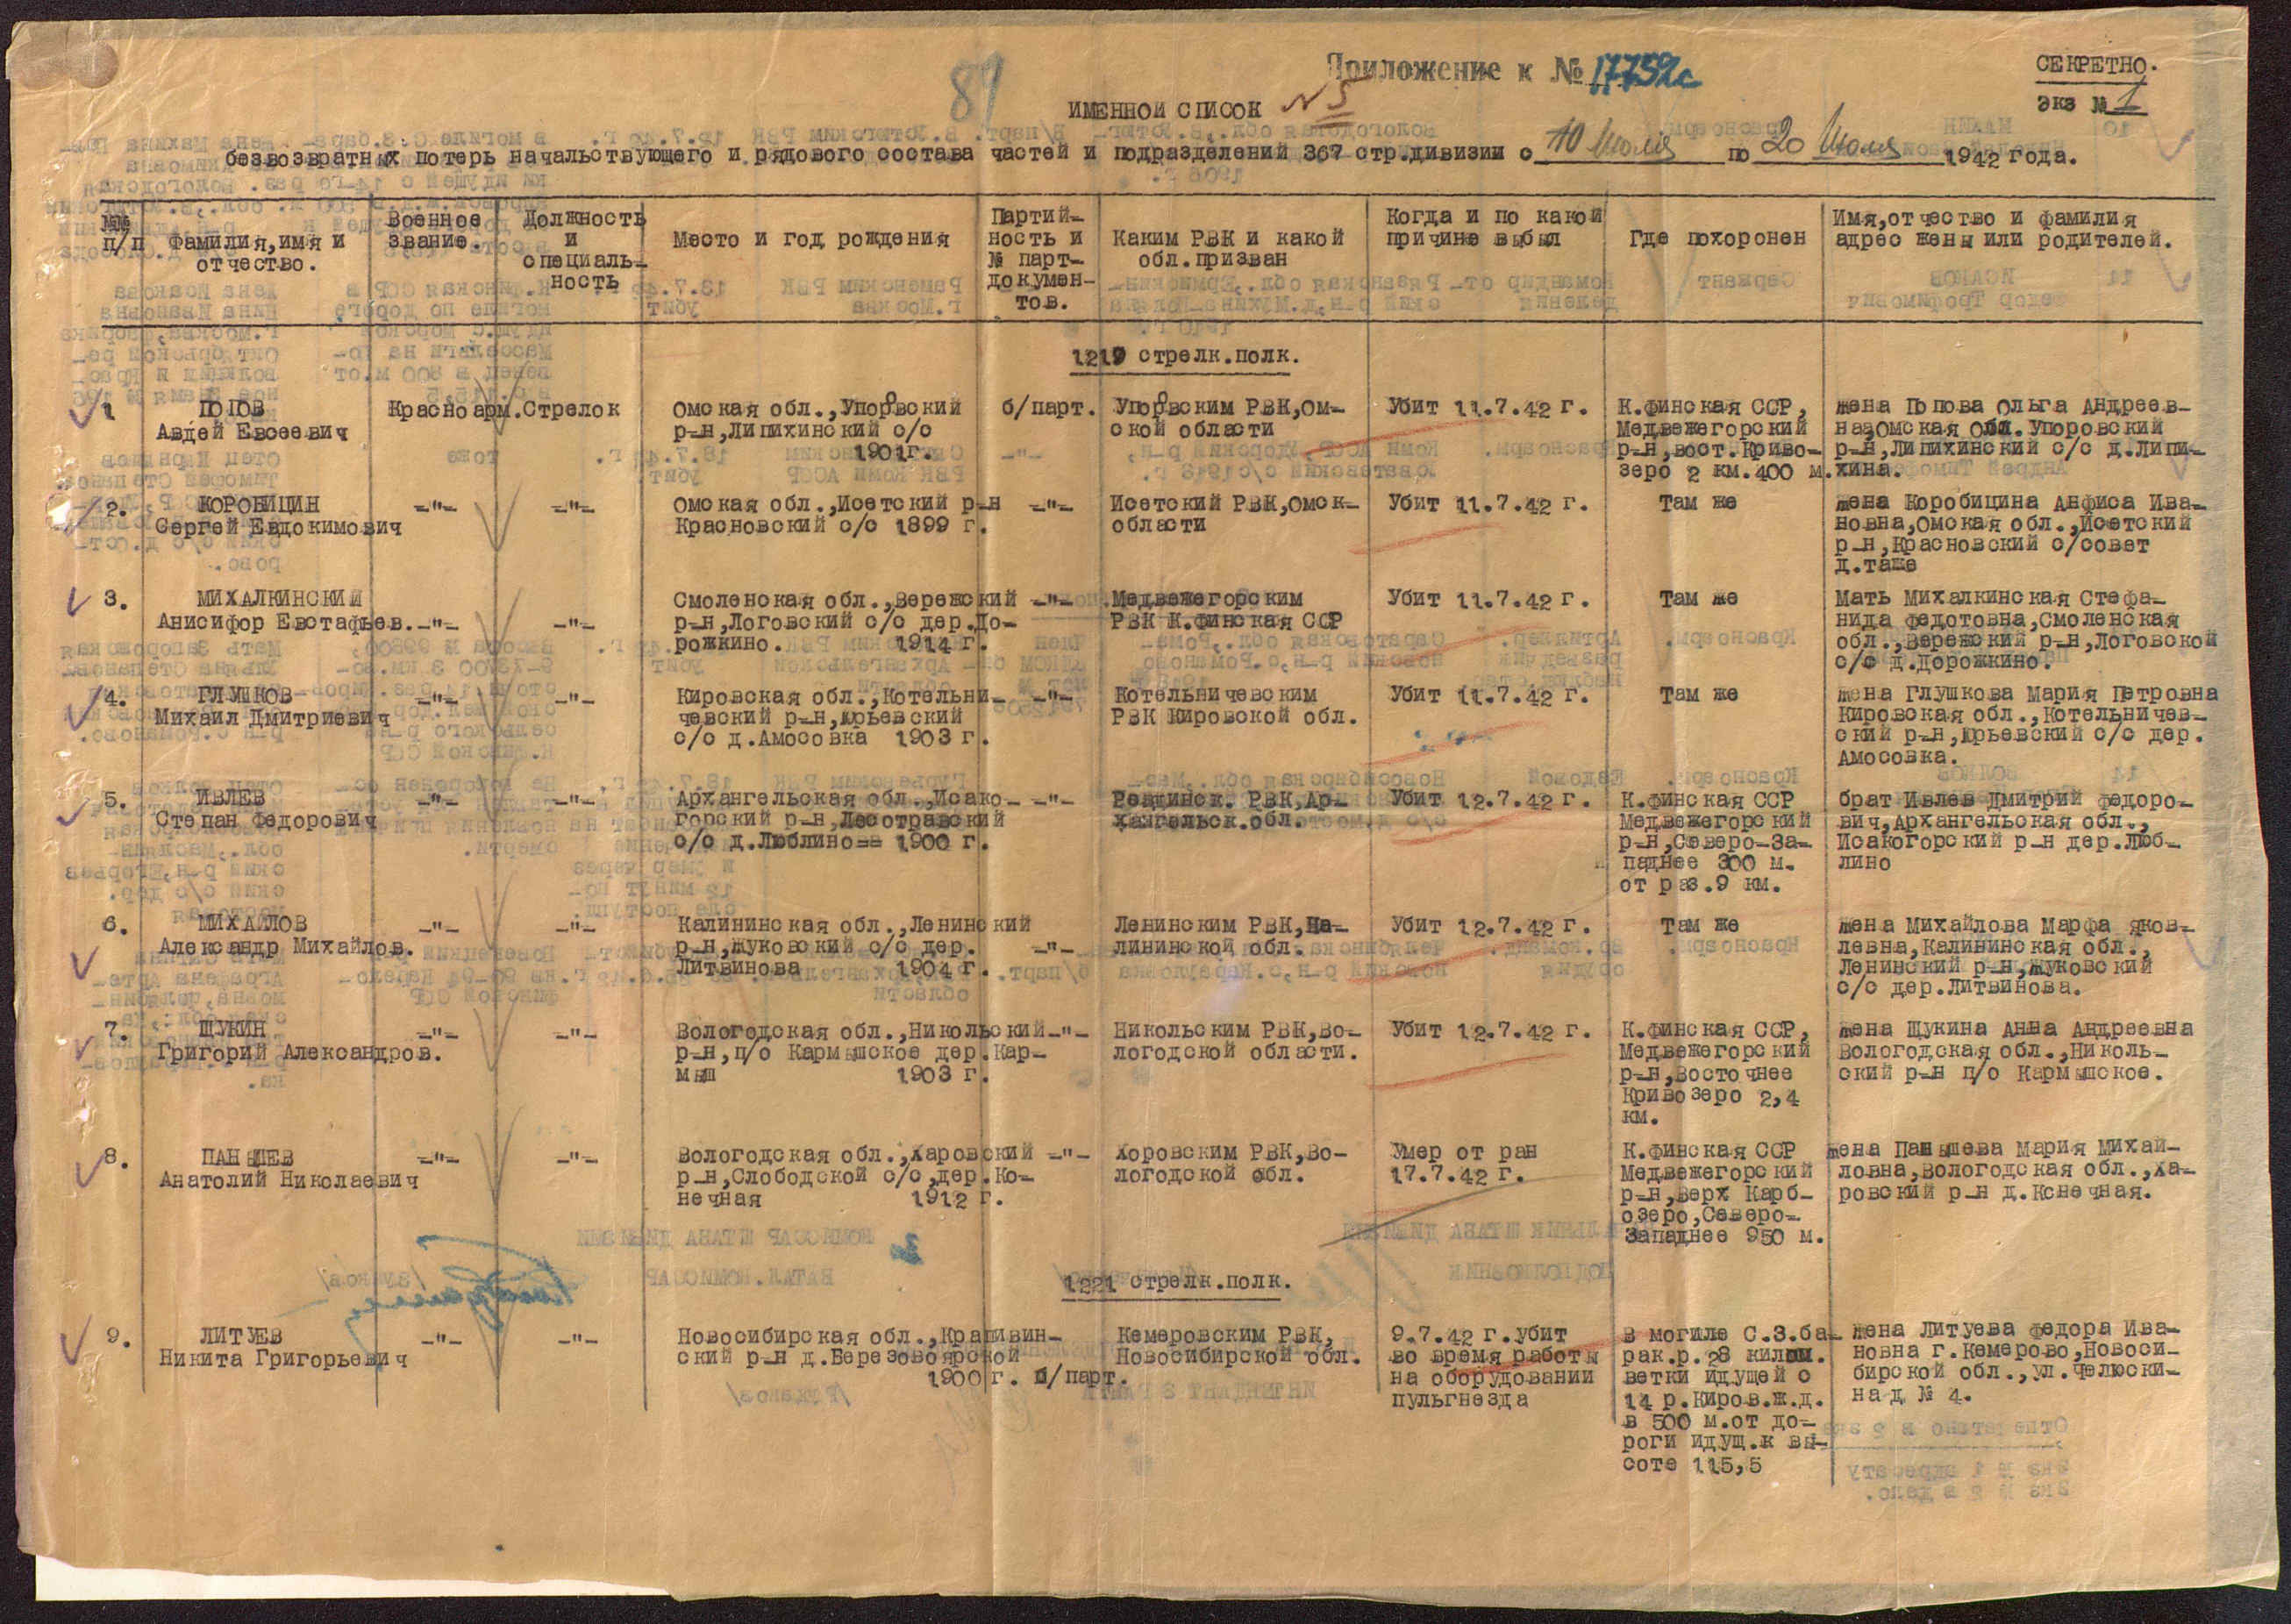 89
Приложение к № 17759с
СЕКРЕТНО.
экз № 1
ИМЕННОЙ СПИСОК N 5
безвозвратных потерь начальствующего и рядового состава частей и подразделений 367 стр.дивизии с 10 Июля по 20 Июля 1942 года.
№№ п/п
Фамилия,имя и отчество.
Военное звание.
Должность и специаль- ность
Место и год рождения
Партий- ность и № парт- докумен- тов.
Каким РВК и какой обл.призван
Когда и по какой причине выбыл
Где похоронен
Имя,отчество и фамилия адрес жены или родителей.
1219 стрелк.полк.
1 ПОПОВ Красноарм. Стрелок Омская обл.,Упоровский б/парт. Упоровским РВК,Ом- Убит 11.7.42 г. К.финская ССР, жена Попова Ольга Андреев-
Авдей Евсеевич р-н,Липихинский с/с ской области Медвежегорский на,Омская обл. Упоровский
1901г. р-н,вост.Криво- р-н,Липихинский с/с д.Липи-
зеро 2 км.400 м. хина.
2. КОРОБИЦИН -"- -"- Омская обл.,Исетский р-н -"- Исетский РВК,Омск- Убит 11.7.42 г. Там же жена Коробицина Анфиса Ива-
Сергей Евдокимович Красновский с/с 1899 г. области новна,Омская обл.,Исетский
р-н,Красновский с/совет
д.таже
3. МИХАЛКИНСКИЙ Смоленская обл.,Вережский -"- Медвежегорским Убит 11.7.42 г. Там же Мать Михалкинская Стефа-
Анисифор Евстафьев. -"- -"- р-н,Логовский с/с дер.До- РВК К.финская ССР нида федотовна,Смоленская
рожкино. 1914 г. обл.,Вережский р-н,Логовской
с/с д.Дорожкино.
4. ГЛУШКОВ -"- -"- Кировская обл.,Котельни- -"- Котельничевским Убит 11.7.42 г. Там же жена Глушкова Мария Петровна
Михаил Дмитриевич чевский р-н,юрьевский РВК Кировской обл. Кировская обл.,Котельничев-
с/с д.Амосовка 1903 г. ский р-н,юрьевский с/с дер.
Амосовка.
5. ИВЛЕВ -"- -"- Архангельская обл.,Исако- -"- РВК,Ар- Убит 12.7.42 г. К.финская ССР брат Ивлев Дмитрий федоро-
Степан федорович горский р-н,Лесотравский хангельск.обл. Медвежегорский вич,Архангельская обл.,
с/с д.Люблинова 1900 г. р-н,Северо-за- Исакогорский р-н дер.Люб-
паднее 300 м. лино
от раз.9 км.
6. МИХАЙЛОВ -"- -"- Калининская обл.,Ленинский Ленинским РВК,Ка- Убит 12.7.42 г. Там же жена Михайлова Марфа яков-
Александр Михайлов. р-н,жуковский с/с дер. -"- лининской обл. левна,Калининская обл.,
Литвинова 1904 г. Ленинский р-н,жуковский
с/с дер.Литвинова.
7. ЩУКИН -"- -"- Вологодская обл.,Никольский -"- Никольским РВК,Во- Убит 12.7.42 г. К.финская ССР, жена Щукина Анна Андреевна
Григорий Александров. р-н,п/о Кармышское дер.Кар- логодской области. Медвежегорский Вологодская обл.,Николь-
мыш 1903 г. р-н,восточнее ский р-н п/о Кармышское.
Кривозеро 2,4
км.
8. ПАНЫШЕВ -"- -"- Вологодская обл.,харовский -"- Хоровским РВК,Во- Умер от ран К.финская ССР жена Панышева Мария Михай-
Анатолий Николаевич р-н,Слободской с/с,дер.Ко- логодской обл. 17.7.42 г. Медвежегорский ловна,Вологодская обл.,ха-
нечная 1912 г. р-н,верх Карб- ровский р-н д.Кснечная.
озеро,Северо-
Западнее 950 м.
1221 стрелк.полк.
9. ЛИТУЕВ -"- -"- Новосибирская обл.,Крапивин- Кемеровским РВК, 9.7.42 г.убит В могиле С.З.ба- жена Литуева федора Ива-
Никита Григорьевич ский р-н д.Березовоярской Новосибирской обл. во время работы рак.р.28 килом. новна г.Кемерово,Новоси-
1900 г. б/парт. на оборудовании ветки идущей с бирской обл.,ул.челюски-
пульгнезда 14 р.Киров.ж.д. на д № 4.
в 500 м.от до-
роги идущ.к вы-
соте 115,5